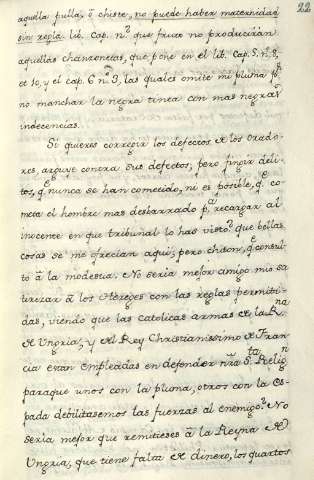 22
aquella pulla, ô chiste, no puede haber maternidad
sin regla. lib. cap. n.º que fruto no producirán
aquellas chanzonetas, que pone en el lib. Cap. 5. n.º 8,
et 10, y el cap. 6 n.º 3, las quales omite mi pluma p.r
no manchar la negra tinta con mas negras
indecencias.
Si quieres corregir los defectos de los orado-
res, arguye contra sus defectos, pero fingir deli-
tos, q.e nunca se han cometido, ni es posible, q.e co-
meta el hombre mas desbarrado p.a recargar al
inocente en que tribunal lo has visto? que bellas
cosas se me ofrecian aqui; pero chiton, q.e consul-
to â la modestia. No seria mejor amigo mio sa-
tirizar â los Hereges con las reglas permiti-
das, viendo que las catolicas armas de la R.na
de Ungria, y del Rey Christianissimo de Fran-
cia estan empleadas en defender nra S.ta Relig.n
paraque unos con la pluma, otros con la es-
pada debilitasemos las fuerzas al enemigo? No
seria mejor que remitieses â la Reyna de
Ungria, que tiene falta de dinero, los quartos